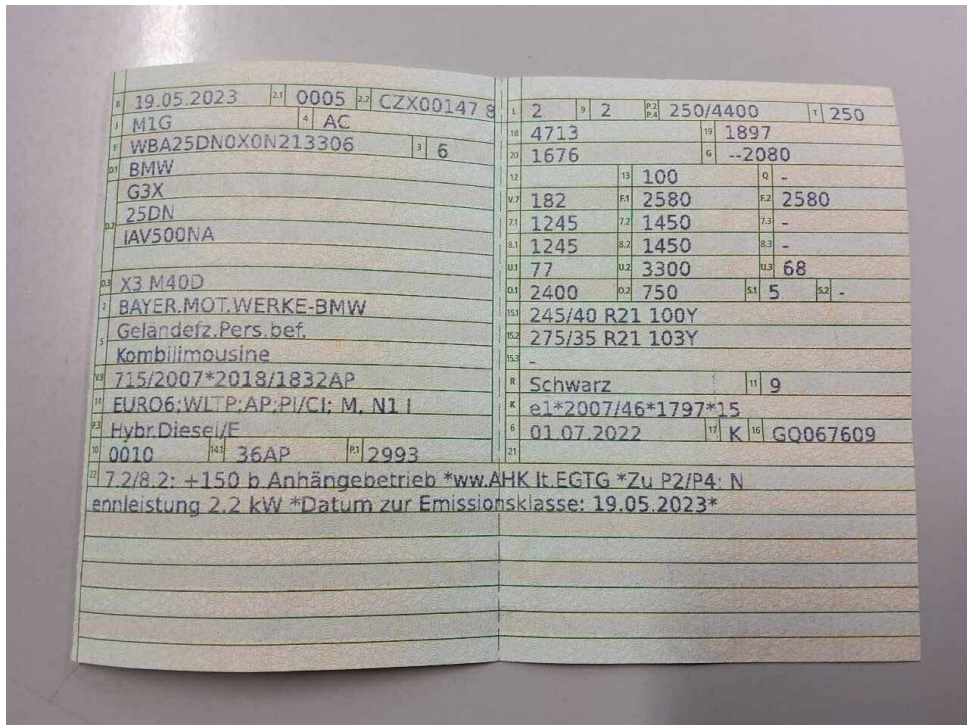 B 19.05.2023 2.1 0005 2.2 CZX00147 8
J M1G 4 AC
E WBA25DN0X0N213306 3 6
D.1 BMW
D.2 G3X
25DN
IAV500NA
D.3 X3 M40D
2 BAYER.MOT.WERKE-BMW
5 Geländefz.Pers.bef.
Kombilimousine
V.9 715/2007*2018/1832AP
14 EURO6;WLTP;AP;PI/CI; M, N1 I
P.3 Hybr.Diesel/E
10 0010 14.1 36AP P.1 2993
L 2 9 2 P.2 P.4 250/4400 T 250
18 4713 19 1897
20 1676 G --2080
12 13 100 Q -
V.7 182 F.1 2580 F.2 2580
7.1 1245 7.2 1450 7.3 -
8.1 1245 8.2 1450 8.3 -
U.1 77 U.2 3300 U.3 68
O.1 2400 O.2 750 S.1 5 S.2 -
15.1 245/40 R21 100Y
15.2 275/35 R21 103Y
15.3 -
R Schwarz 11 9
K e1*2007/46*1797*15
6 01.07.2022 17 K 16 GQ067609
21
22 7.2/8.2: +150 b.Anhängebetrieb *ww.AHK lt.EGTG *Zu P2/P4: N
ennleistung 2.2 kW *Datum zur Emissionsklasse: 19.05.2023*